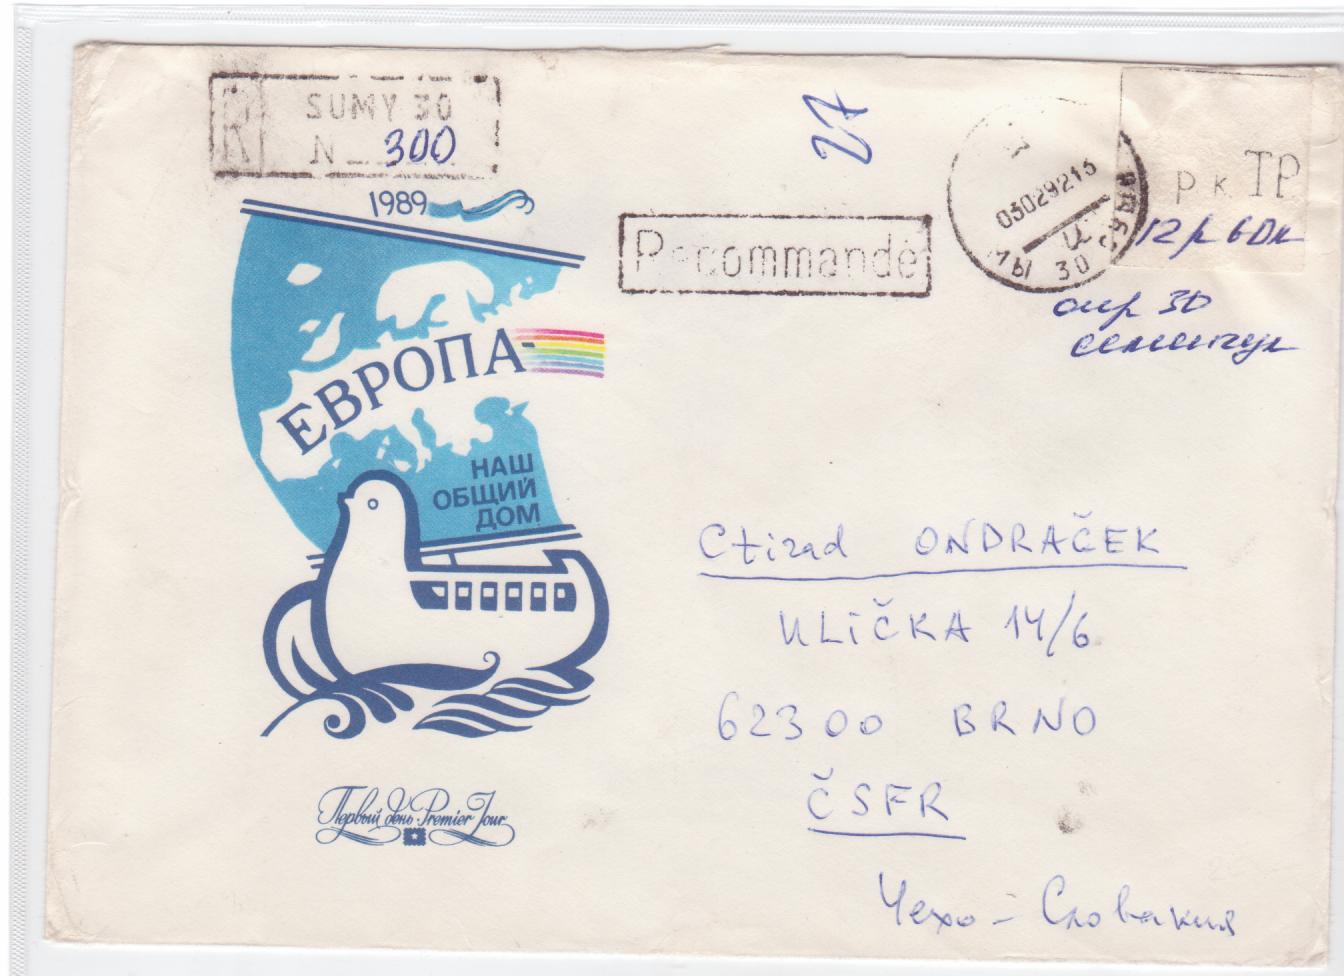 SUMY 30
N 300
1989
27
Recommandé
0302921
30
р к ТР
12р 60к
опр 30
ЕВРОПА-
НАШ
ОБЩИЙ
ДОМ
Ctirad ONDRAČEK
ULIČKA 14/6
62300 BRNO
ČSFR
Чехо-Словакия
Первый день·Premier Jour